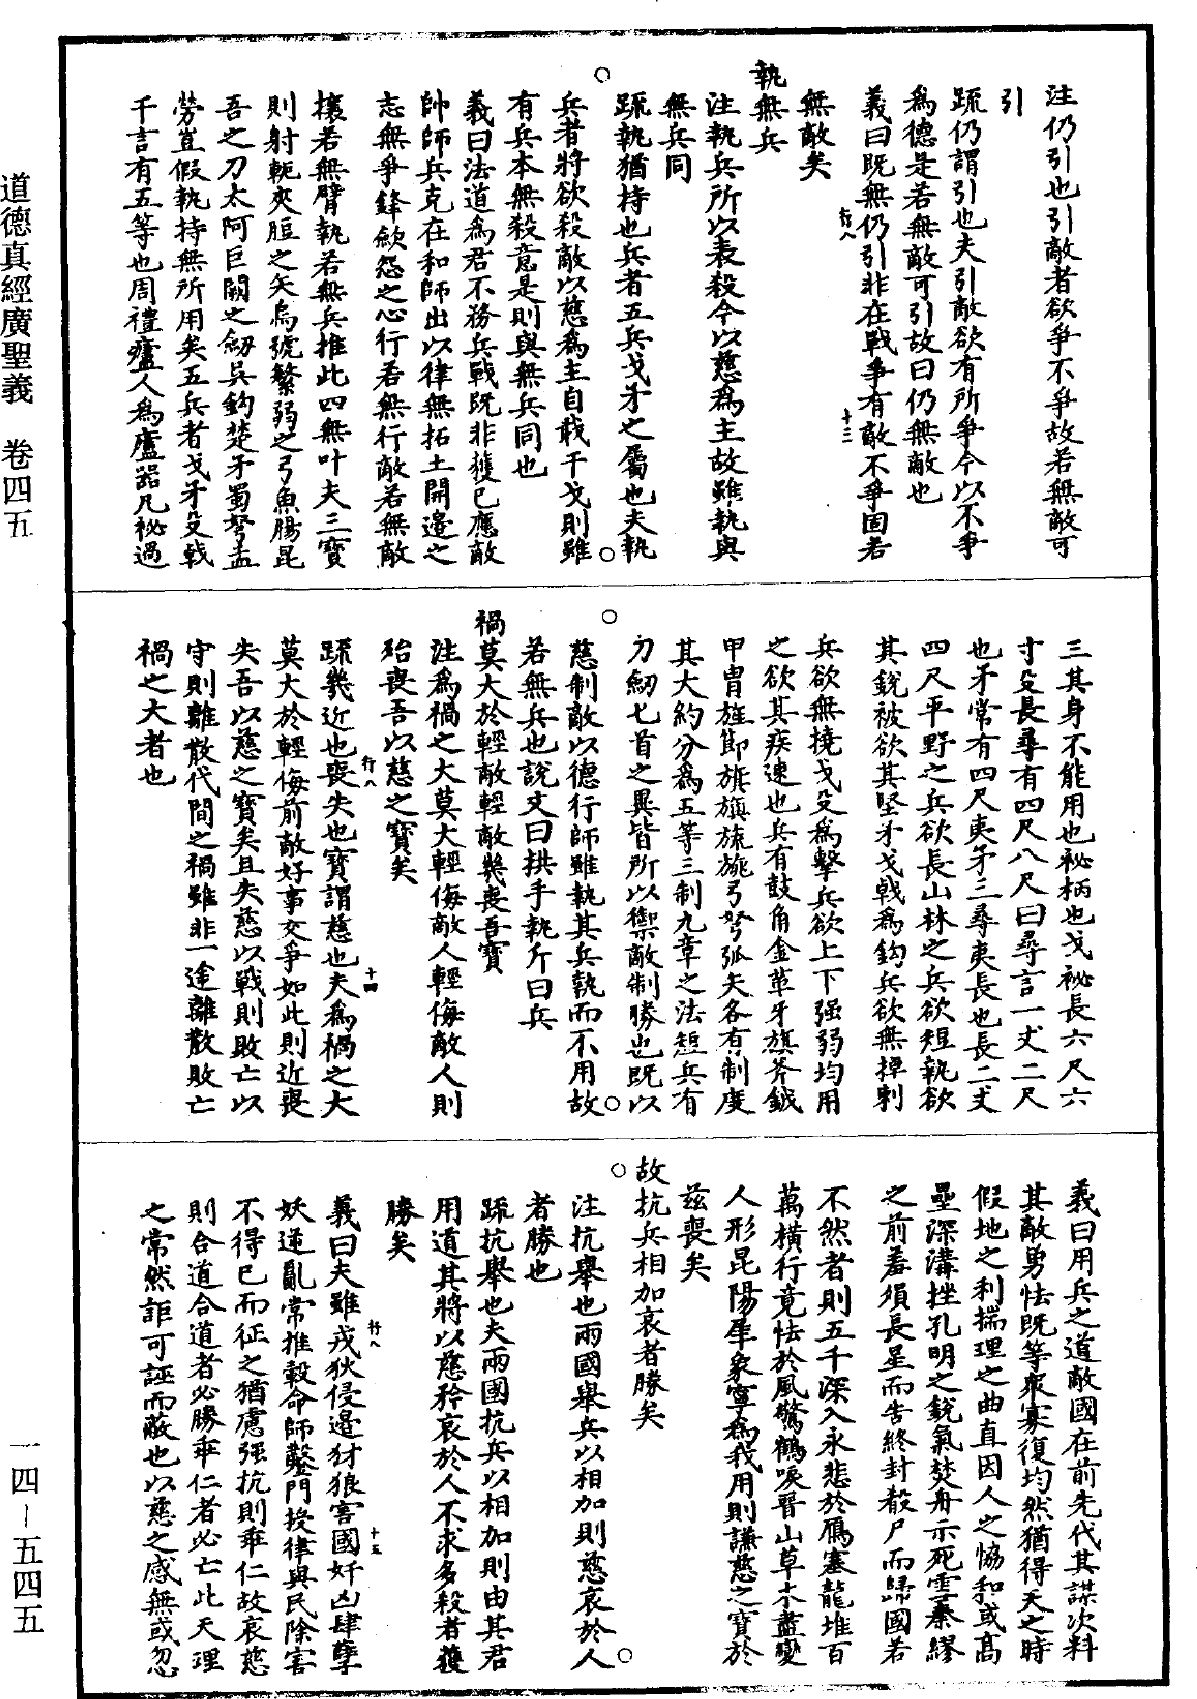 道德真經廣聖義 卷四五
一四-五四五
注仍引也引敵者欲爭不爭故若無敵可
引
疏仍謂引也夫引敵欲有所爭今以不爭
為德是若無敵可引故曰仍無敵也
義曰既無仍引非在戰爭有敵不爭固若
行八
十三
無敵矣
執無兵
注執兵所以表殺今以慈為主故雖執與
無兵同
疏執猶持也兵者五兵戈矛之屬也夫執
兵者將欲殺敵以慈為主自戢干戈則雖
有兵本無殺意是則與無兵同也
義曰法道為君不務兵戰既非獲已應敵
帥師兵克在和師出以律無拓土開邊之
志無爭鋒斂怨之心行若無行敵若無敵
攘若無臂執若無兵推此四無叶夫三寶
則射軛夾脰之矢烏號繁弱之弓魚腸昆
吾之刀太阿巨闕之劒吳鉤楚矛蜀弩孟
勞豈假執持無所用矣五兵者戈矛殳戟
千言有五等也周禮廬人為廬器凡祕過
三其身不能用也祕柄也戈祕長六尺六
寸殳長尋有四尺八尺曰尋言一丈二尺
也矛常有四尺夷矛三尋夷長也長二丈
四尺平野之兵欲長山林之兵欲短執欲
其銳被欲其堅矛戈戟為鉤兵欲無掉剌
兵欲無撓戈殳為擊兵欲上下强弱均用
之欲其疾速也兵有鼓角金革牙旗斧鉞
甲冑旌節旗旟旒旐弓弩弧矢各有制度
其大約分為五等三制九章之法短兵有
刀劒七首之異皆所以禦敵制勝也既以
慈制敵以德行師雖執其兵執而不用故
若無兵也說文曰拱手執斤曰兵
禍莫大於輕敵輕敵幾喪吾寶
注為禍之大莫大輕侮敵人輕侮敵人則
殆喪吾以慈之寶矣
行八
十四
疏幾近也喪失也寶謂慈也夫為禍之大
莫大於輕侮前敵好事交爭如此則近喪
失吾以慈之寶矣且失慈以戰則敗亡以
守則離散代間之禍雖非一途離散敗亡
禍之大者也
義曰用兵之道敵國在前先代其謀次料
其敵勇怯既等衆寡復均然猶得天之時
假地之利揣理之曲直因人之恊和或高
壘深溝挫孔明之銳氣焚舟示死雪秦繆
之前羞須長星而告終封殽尸而歸國若
不然者則五千深入永悲於鴈塞龍堆百
萬橫行竟怯於風驚鶴唳晉山草木盡變
人形昆陽犀象寧為我用則謙慈之寶於
茲喪矣
故抗兵相加哀者勝矣
注抗舉也兩國舉兵以相加則慈哀於人
者勝也
疏抗舉也夫兩國抗兵以相加則由其君
用道其將以慈矜哀於人不求多殺者獲
勝矣
行八
十五
義曰夫雖戎狄侵邊犲狼害國奸凶肆孽
妖逆亂常推轂命師鑿門授律與民除害
不得已而征之猶慮强抗則乖仁故哀慈
則合道合道者必勝乖仁者必亡此天理
之常然詎可誣而蔽也以慈之感無或忽